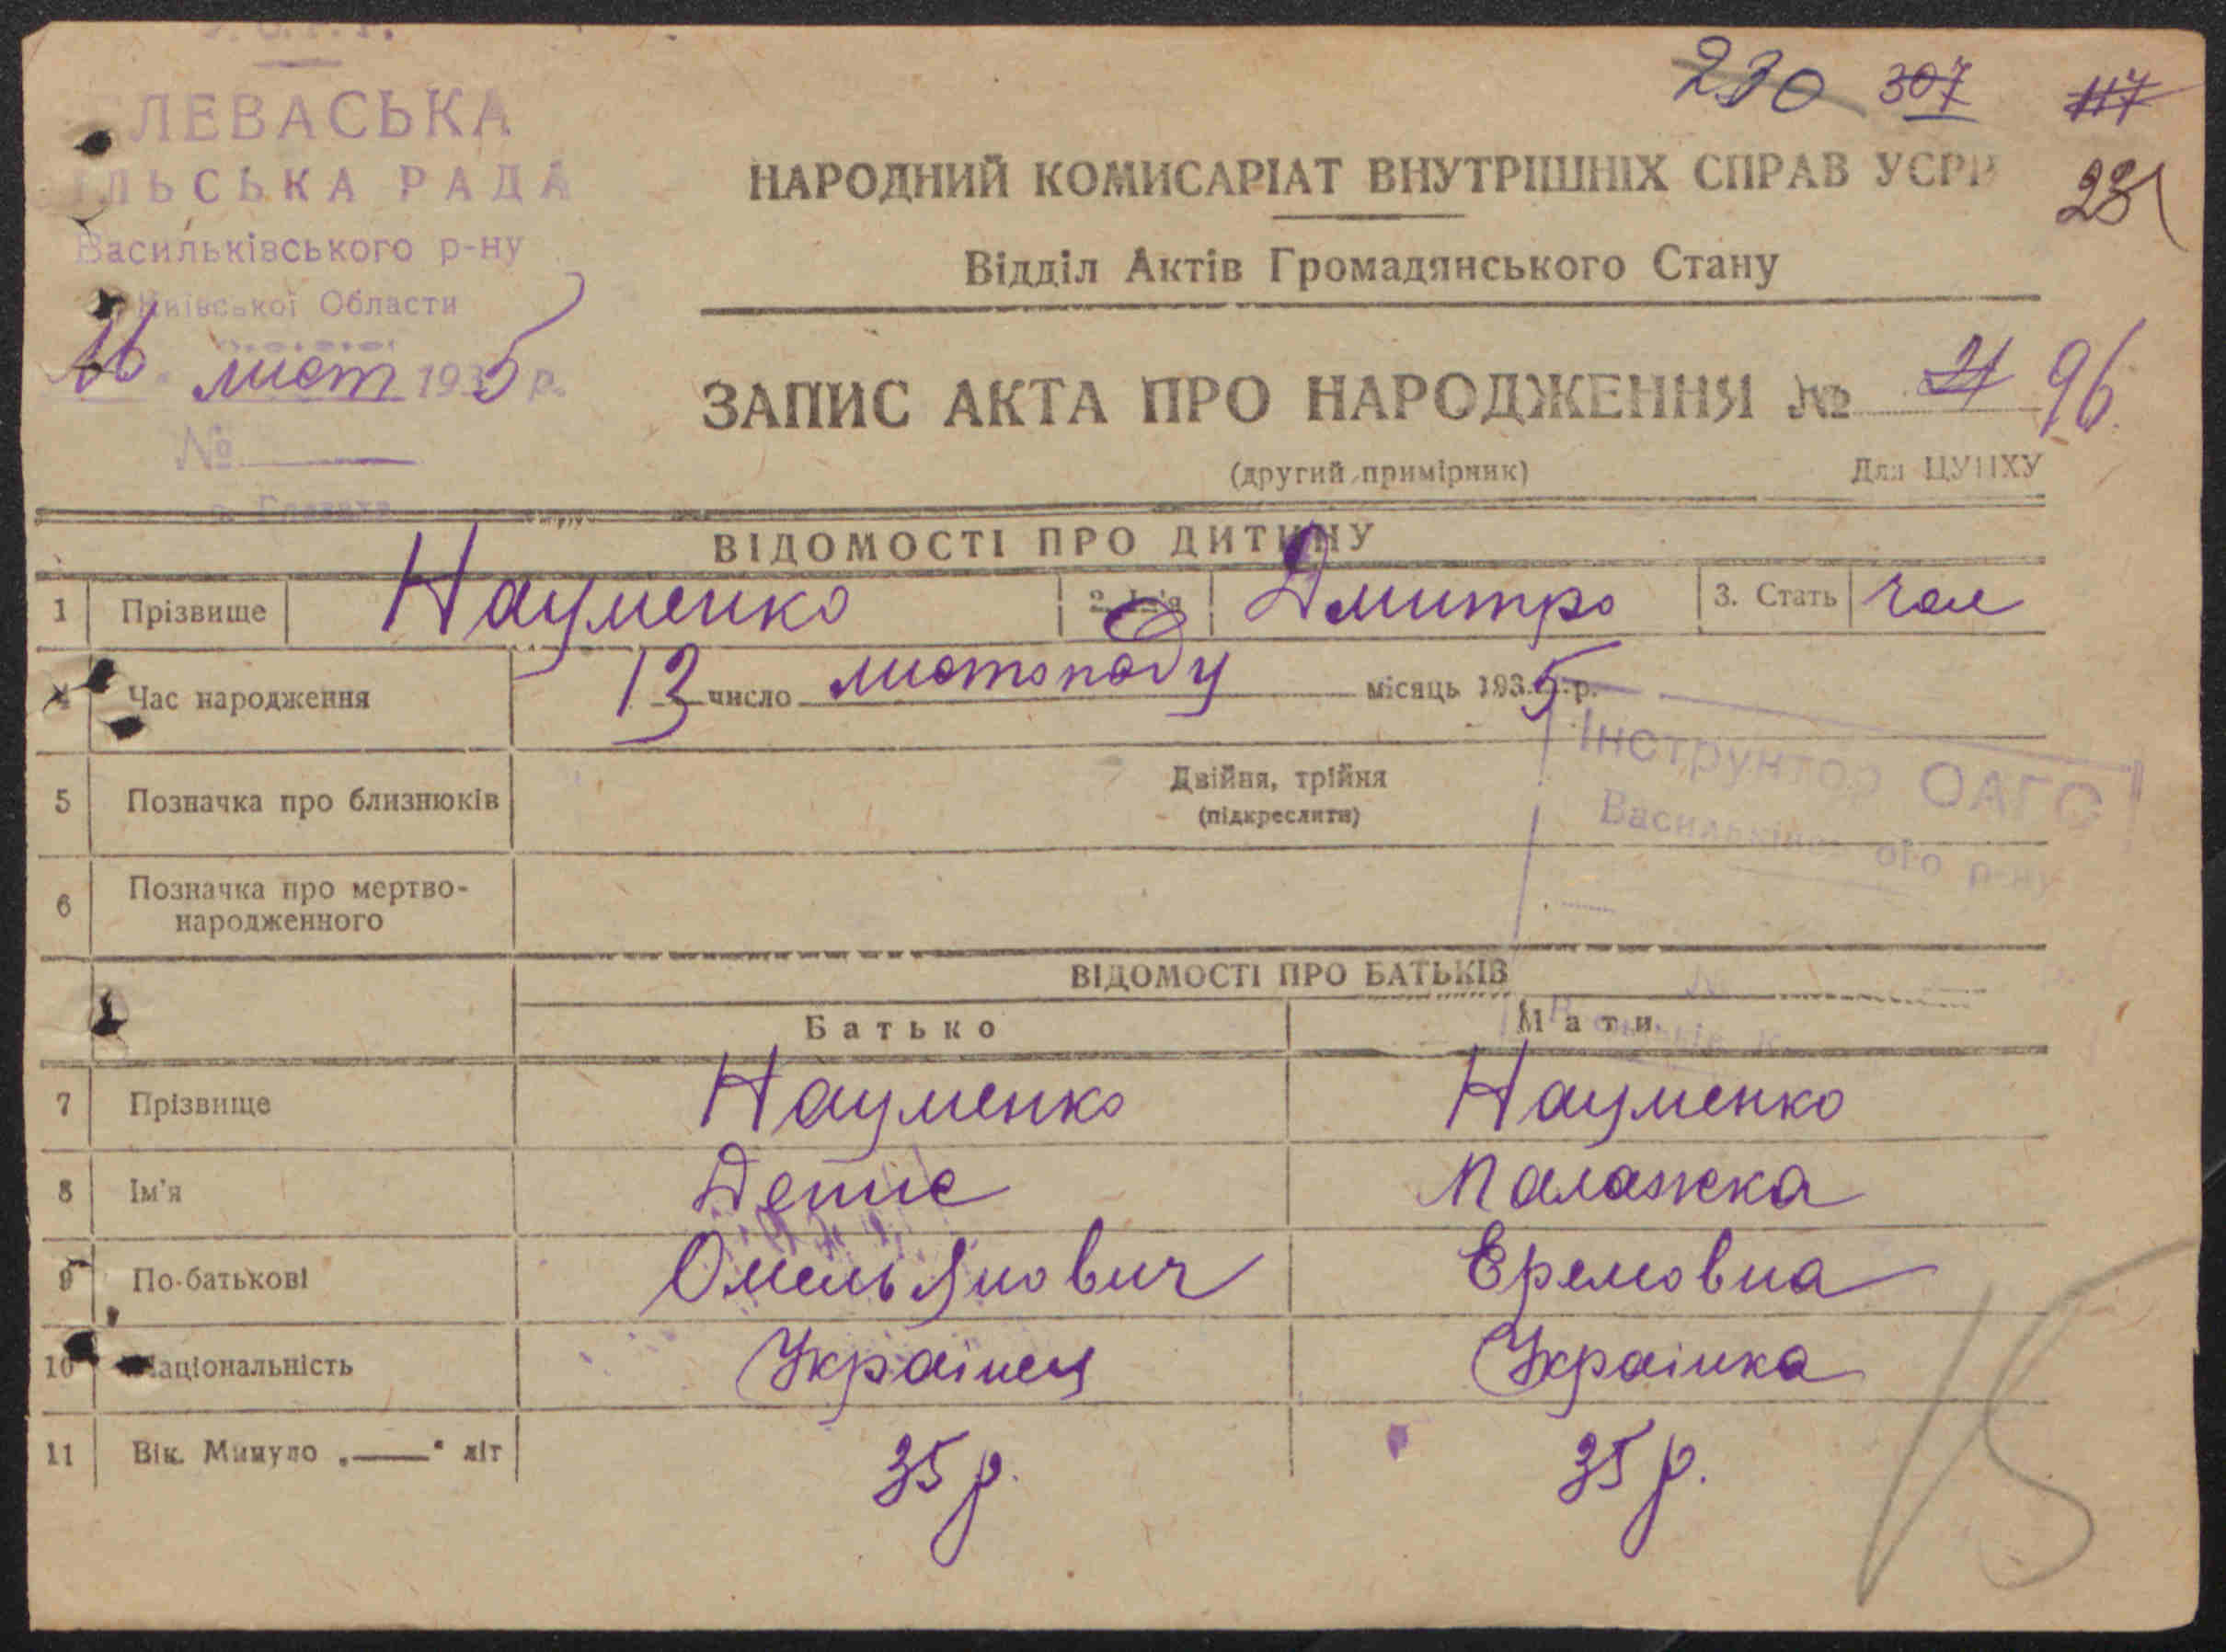 У.С.Р.Р.
ЛЕВАСЬКА
ІЛЬСЬКА РАДА
Васильківського р-ну
Київської Области
16 лист 1935 р.
№
с. Глеваха
230 307 117
231
НАРОДНИЙ КОМИСАРІАТ ВНУТРІШНІХ СПРАВ УСРР
Відділ Актів Громадянського Стану
ЗАПИС АКТА ПРО НАРОДЖЕННЯ № 21 96
(другий примірник) Для ЦУНХУ
ВІДОМОСТІ ПРО ДИТИНУ
1 Прізвище Науменко 2. Ім'я Дмитро 3. Стать чол
4 Час народження 13 число листопаду місяць 1935 р.
Інструктор ОАГС
Васильківського р-ну
5 Позначка про близнюків Двійня, трійня
(підкреслити)
6 Позначка про мертво-
народженного
ВІДОМОСТІ ПРО БАТЬКІВ
Батько Мати
7 Прізвище Науменко Науменко
8 Ім'я Денис Палажка
9 По-батькові Омельянович Еремовна
10 Національність Українец Українка
11 Вік. Минуло „—“ літ 35 р. 35 р.
15